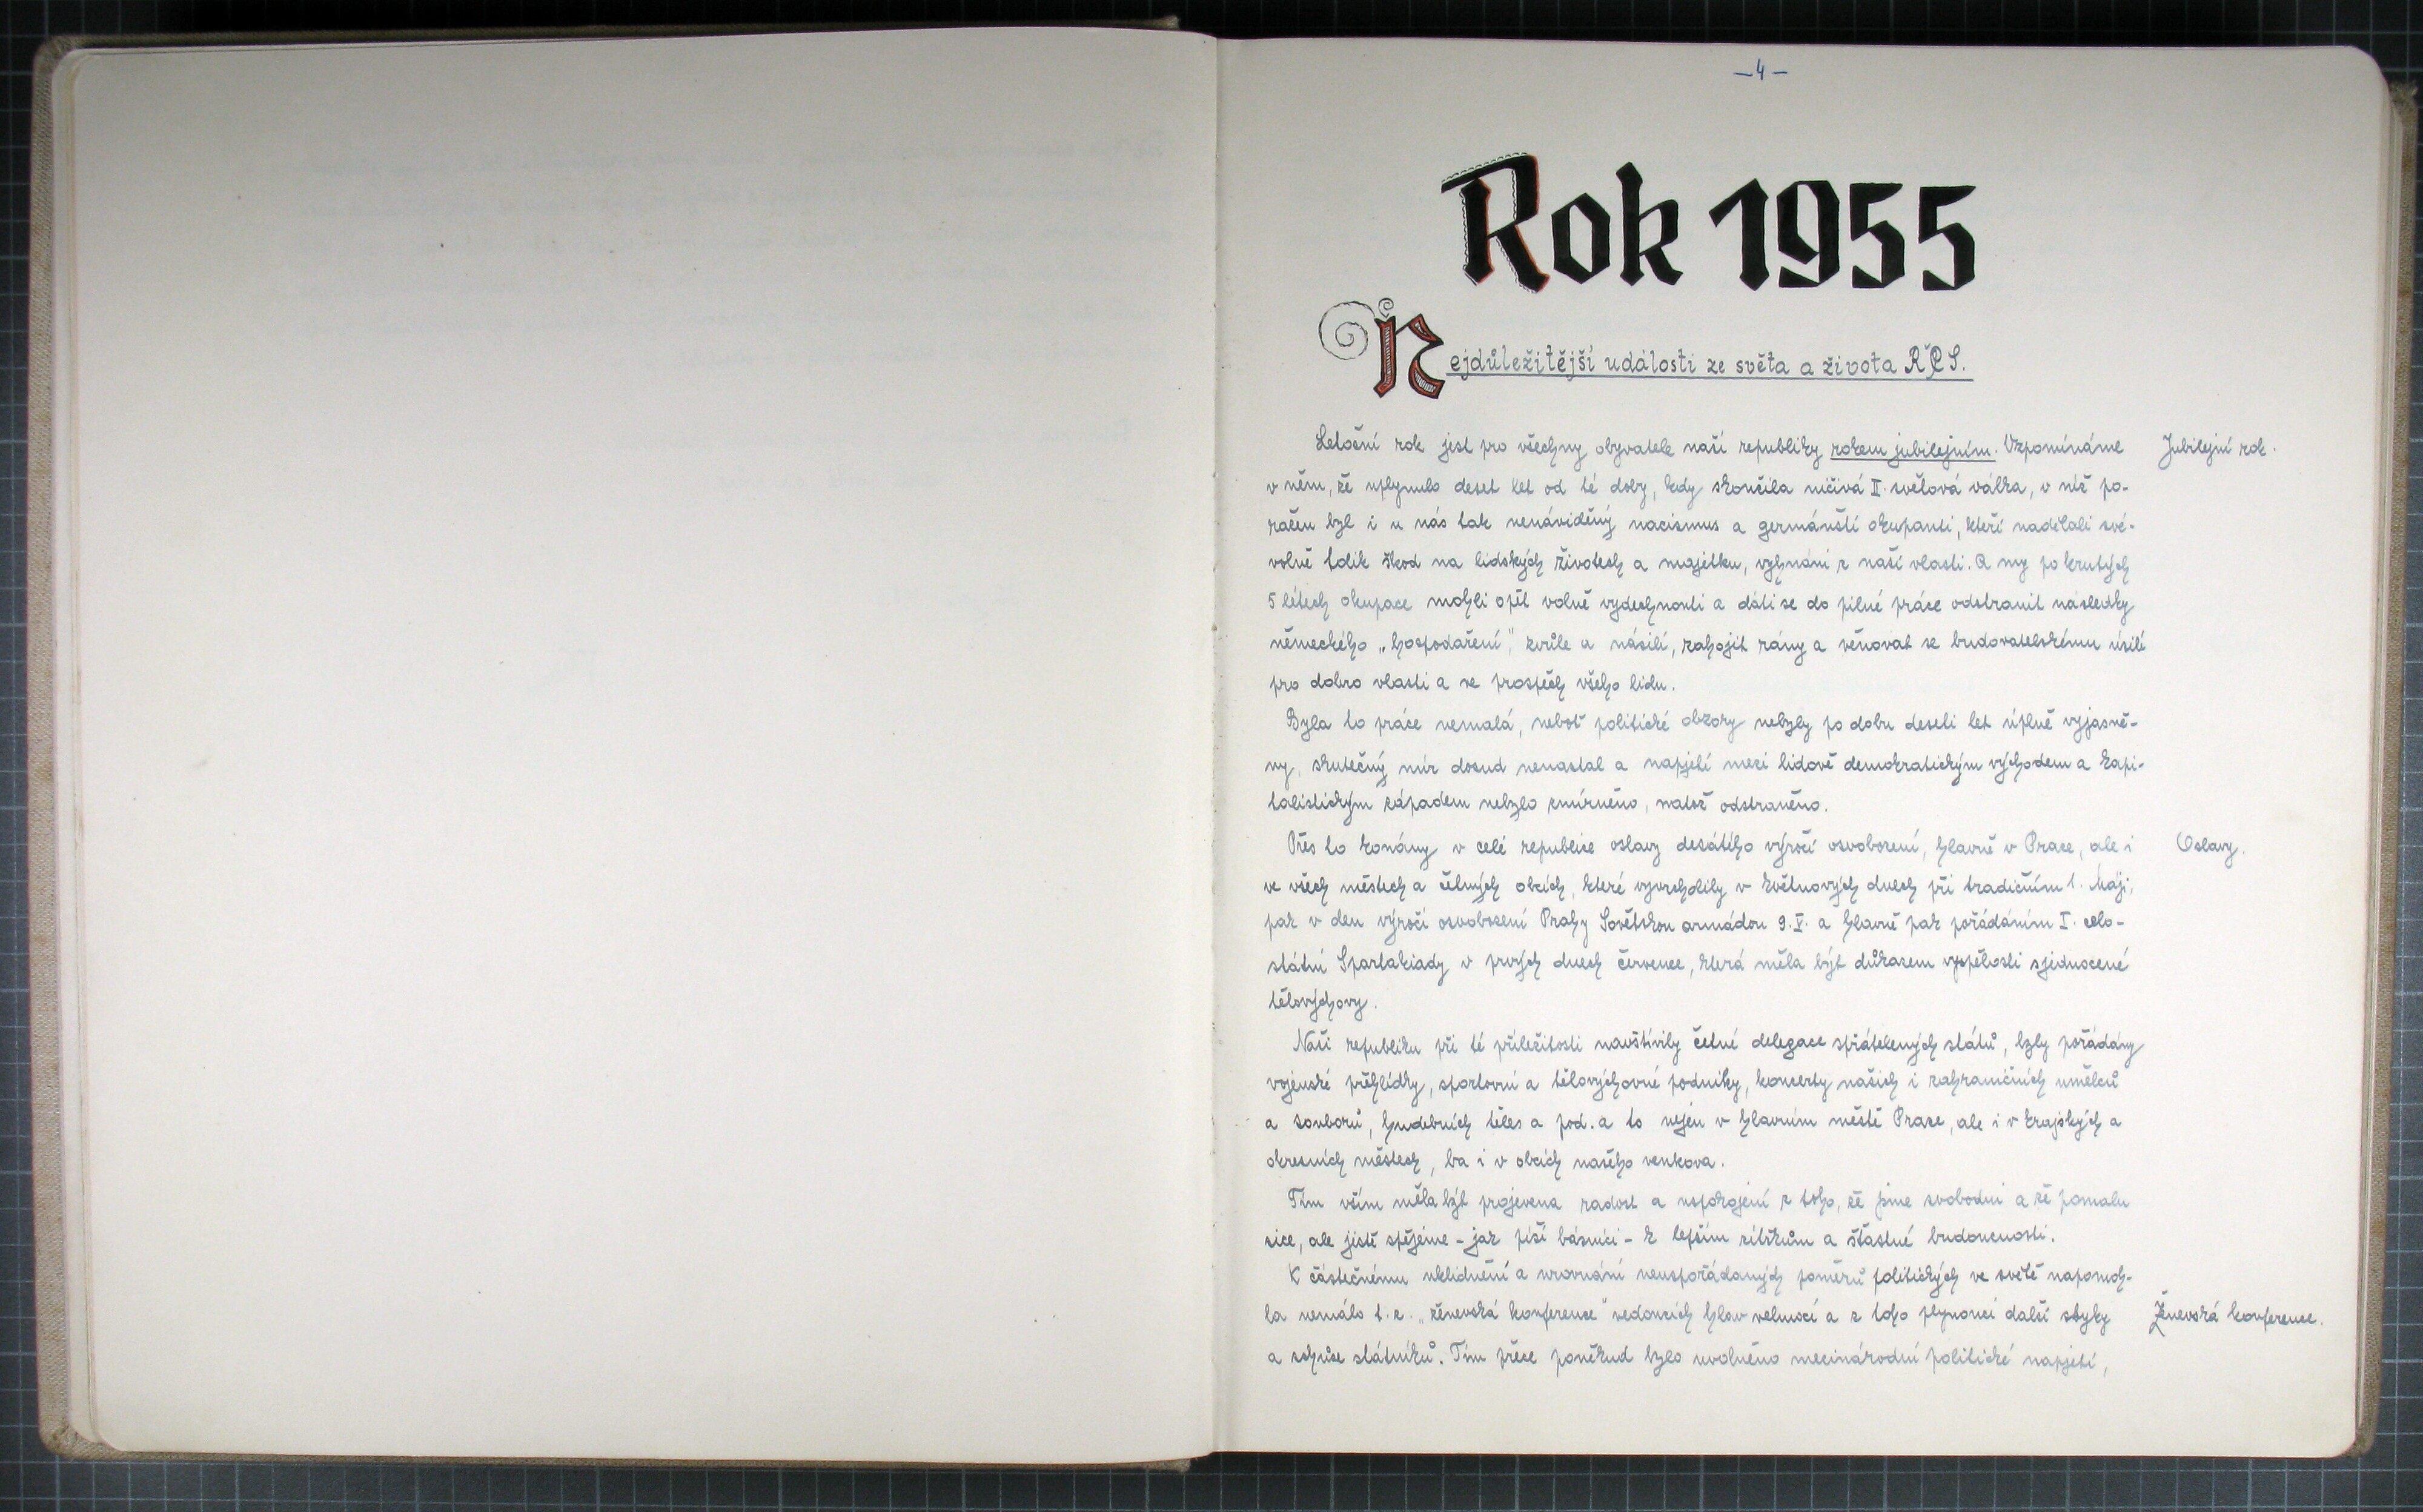 -4-
Rok 1955
Nejdůležitější události ze světa a života RČS.
Letošní rok jest pro všechny obyvatele naší republiky rokem jubilejním. Vzpomínáme
Jubilejní rok.
v něm, že uplynulo deset let od té doby, kdy skončila ničivá II. světová válka, v níž po-
ražen byl i u nás tak nenáviděný nacismus a germánští okupanti, kteří nadělali své-
volně tolik škod na lidských životech a majetku, vyhnáni z naší vlasti. A my po krutých
5 létech okupace mohli opět volně vydechnouti a dáti se do pilné práce odstranit následky
německého „hospodaření", zvůle a násilí, zahojit rány a věnovat se budovatelskému úsilí
pro dobro vlasti a ve prospěch všeho lidu.
Byla to práce nemalá, neboť politické obzory nebyly po dobu deseti let úplně vyjasně-
ny, skutečný mír dosud nenastal a napjetí mezi lidově demokratickým východem a kapi-
talistickým západem nebylo zmírněno, natož odstraněno.
Přes to konány v celé republice oslavy desátého výročí osvobození, hlavně v Praze, ale i
Oslavy.
ve všech městech a četných obcích, které vyvrcholily v květnových dnech při tradičním 1. Máji,
pak v den výročí osvobození Prahy Sovětskou armádou 9.V. a hlavně pak pořádáním I. celo-
státní Spartakiady v prvých dnech července, která měla být důkazem vyspělosti sjednocené
tělovýchovy.
Naši republiku při té příležitosti navštívily četné delegace spřátelených států, byly pořádány
vojenské přehlídky, sportovní a tělovýchovné podniky, koncerty našich i zahraničních umělců
a souborů, hudebních těles a pod. a to nejen v hlavním městě Praze, ale i v krajských a
okresních městech, ba i v obcích našeho venkova.
Tím vším měla být projevena radost a uspokojení z toho, že jsme svobodni a že pomalu
sice, ale jistě spějeme - jak píší básníci - k lepším zítřkům a šťastné budoucnosti.
K částečnému uklidnění a urovnání neuspořádaných poměrů politických ve světě napomoh-
la nemálo t. z. „ženevská konference" vedoucích hlav velmocí a z toho plynoucí další styky
Ženevská konference.
a schůze státníků. Tím přece poněkud bylo uvolněno mezinárodní politické napjetí,